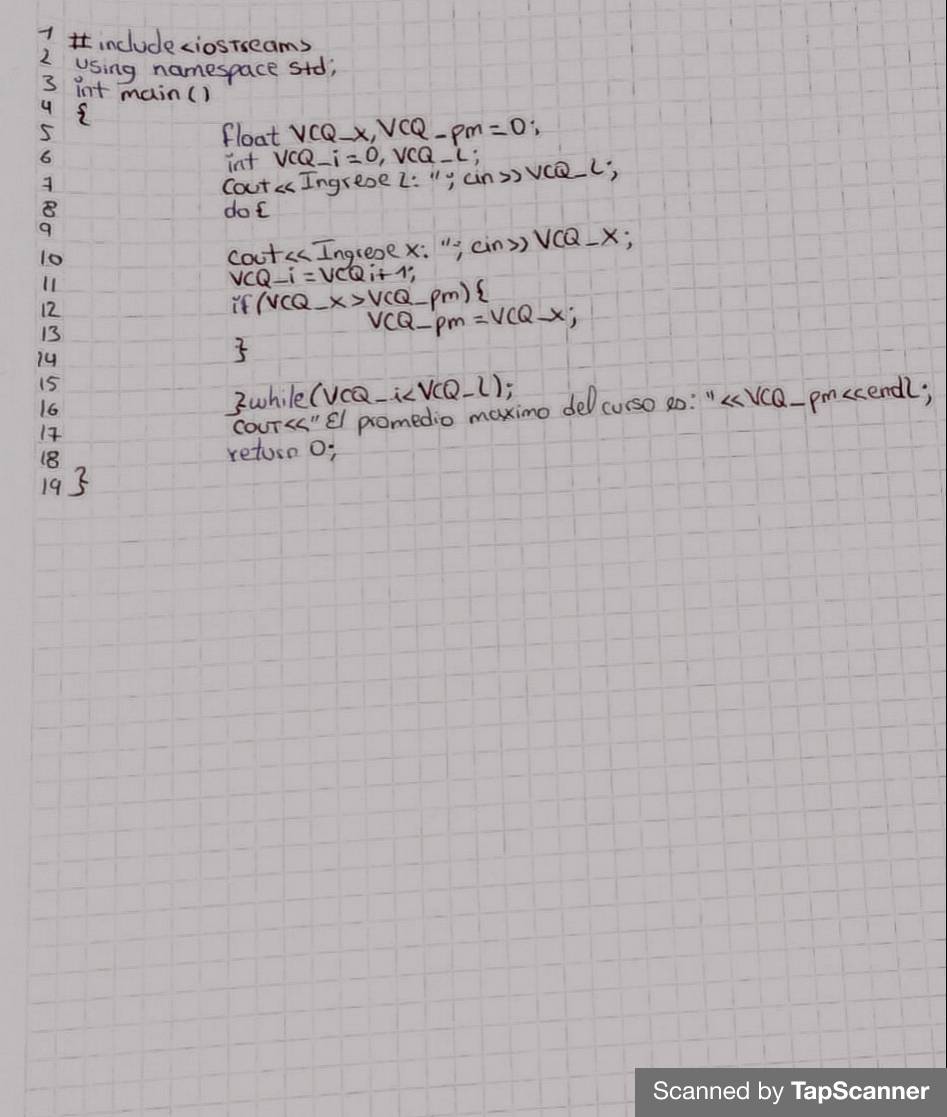 1 #include<iostream>
2 using namespace std;
3 int main()
4 {
5 float VCQ_x, VCQ_pm=0;
6 int VCQ_i=0, VCQ_L;
7 Cout<< Ingrese L: "; cin>> VCQ_L;
8 do{
9
10 cout<< Ingrese x: "; cin>> VCQ_X;
11 VCQ_i=VCQi+1;
12 if(VCQ_x>VCQ_pm){
13 VCQ_pm=VCQ_x;
14 }
15
16 }while(VCQ_i<VCQ_L);
17 COUT<<"El promedio maximo del curso es: "<<VCQ_pm<<endl;
18 return 0;
19 }
Scanned by TapScanner